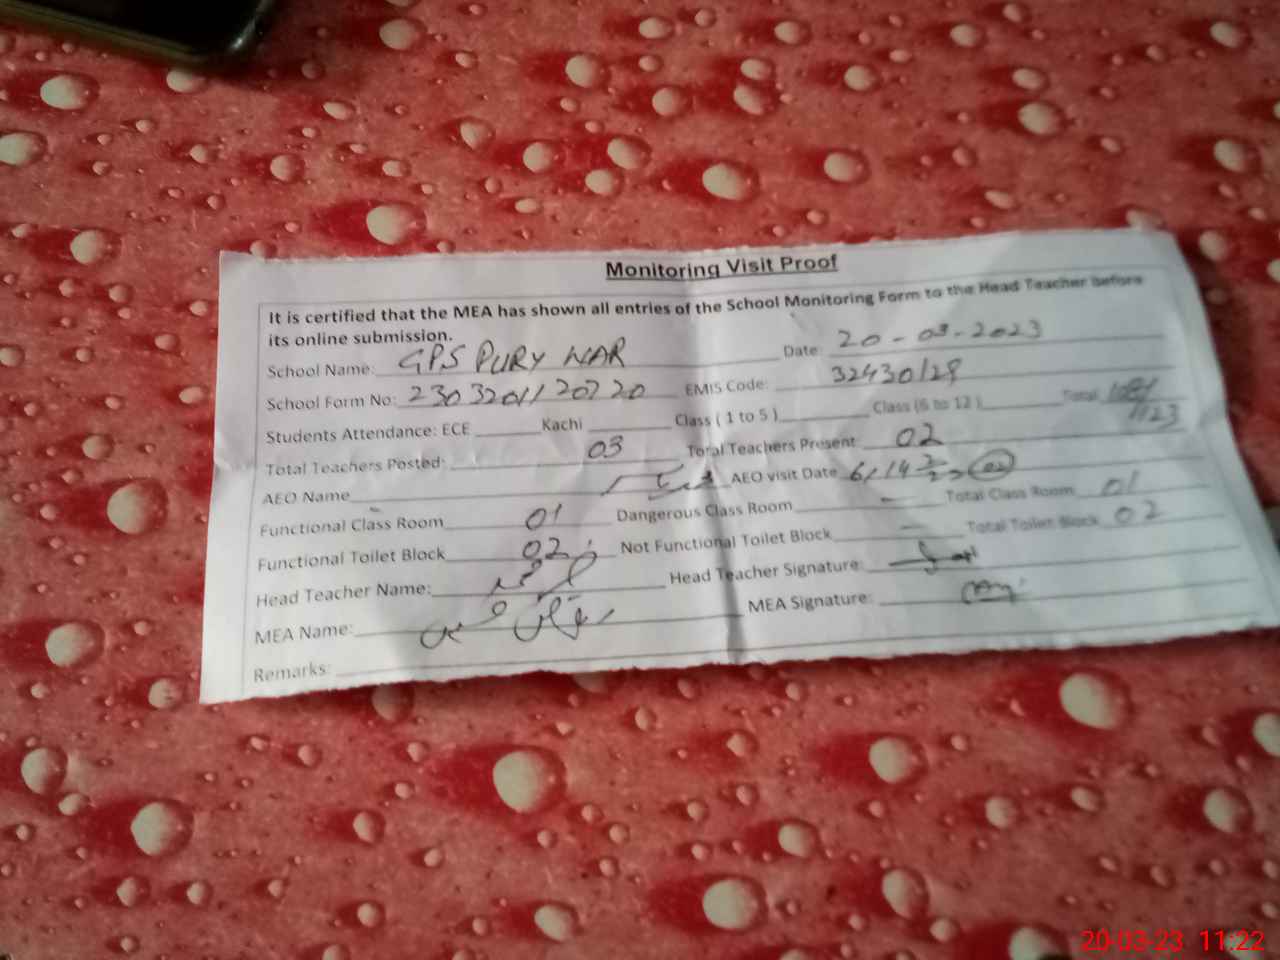 Monitoring Visit Proof
It is certified that the MEA has shown all entries of the School Monitoring Form to the Head Teacher before
its online submission.
School Name: GPS PURY WAR Date: 20-03-2023
School Form No: 2303201120720 EMIS Code: 32430129
Students Attendance: ECE Kachi Class ( 1 to 5 ) Class (6 to 12 ) Total
Total Teachers Posted: 03 Total Teachers Present 02
AEO Name AEO visit Date
Functional Class Room 01 Dangerous Class Room — Total Class Room 01
Functional Toilet Block 02 Not Functional Toilet Block — Total Toilet Block 02
Head Teacher Name: Head Teacher Signature:
MEA Name: MEA Signature:
Remarks:
20-03-23 11:22